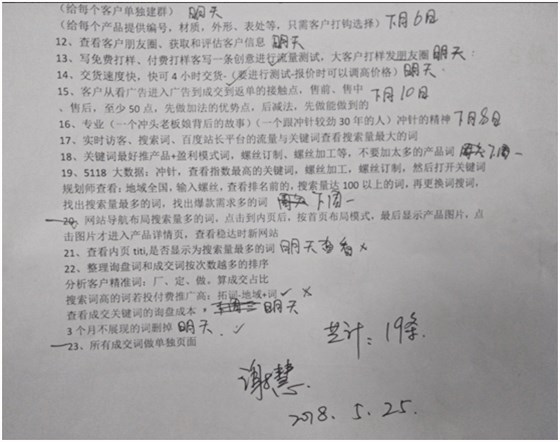 （给每个客户单独建群） 明天
（给每个产品提供编号，材质，外形、表处等，只需客户打钩选择）下月6日
12、查看客户朋友圈、获取和评估客户信息 明天
13、写免费打样、付费打样客写一条创意进行流量测试，大客户打样发朋友圈 明天
14、交货速度快，快可4小时交货-（要进行测试-报价时可以调高价格） 明天
15、客户从看广告进入广告到成交到返单的接触点，售前、售中 下月10日
、售后，至少50点，先做加法的优势点，后减法，先做能做到的
16、专业（一个冲头老板娘背后的故事）（一个跟冲针较劲30年的人）冲针的精神 下月8日
17、实时访客、搜索词、百度站长平台的流量与关键词查看搜索量最大的词
18、关键词最好推产品+盈利模式词，螺丝订制、螺丝加工等，不要加太多的产品词 下周一
19、5118 大数据：冲针，查看指数最高的关键词，螺丝加工，螺丝订制，然后打开关键词
规划师查看：地域全国，输入螺丝，查看排名前的，搜索量达100以上的词，再更换词搜词，
找出搜索量最多的词，找出爆款需求多的词 下周一
20、网站导航布局搜索量多的词，点击到内页后，按首页布局模式，最后显示产品图片，点
击图片才进入产品详情页，查看稳达时新网站
21、查看内页 titi,是否显示为搜索量最多的词 明天查看 ×
22、整理询盘词和成交词按次数越多的排序
分析客户精准词：厂、定、做、算成交占比
搜索词高的词若投付费推广高：拓词-地域+词 ✓ ×
查看成交关键词的询盘成本， 明天
3个月不展现的词删掉 明天. ✓
23、所有成交词做单独页面
共计：19条
谢慧.
2018.5.25.